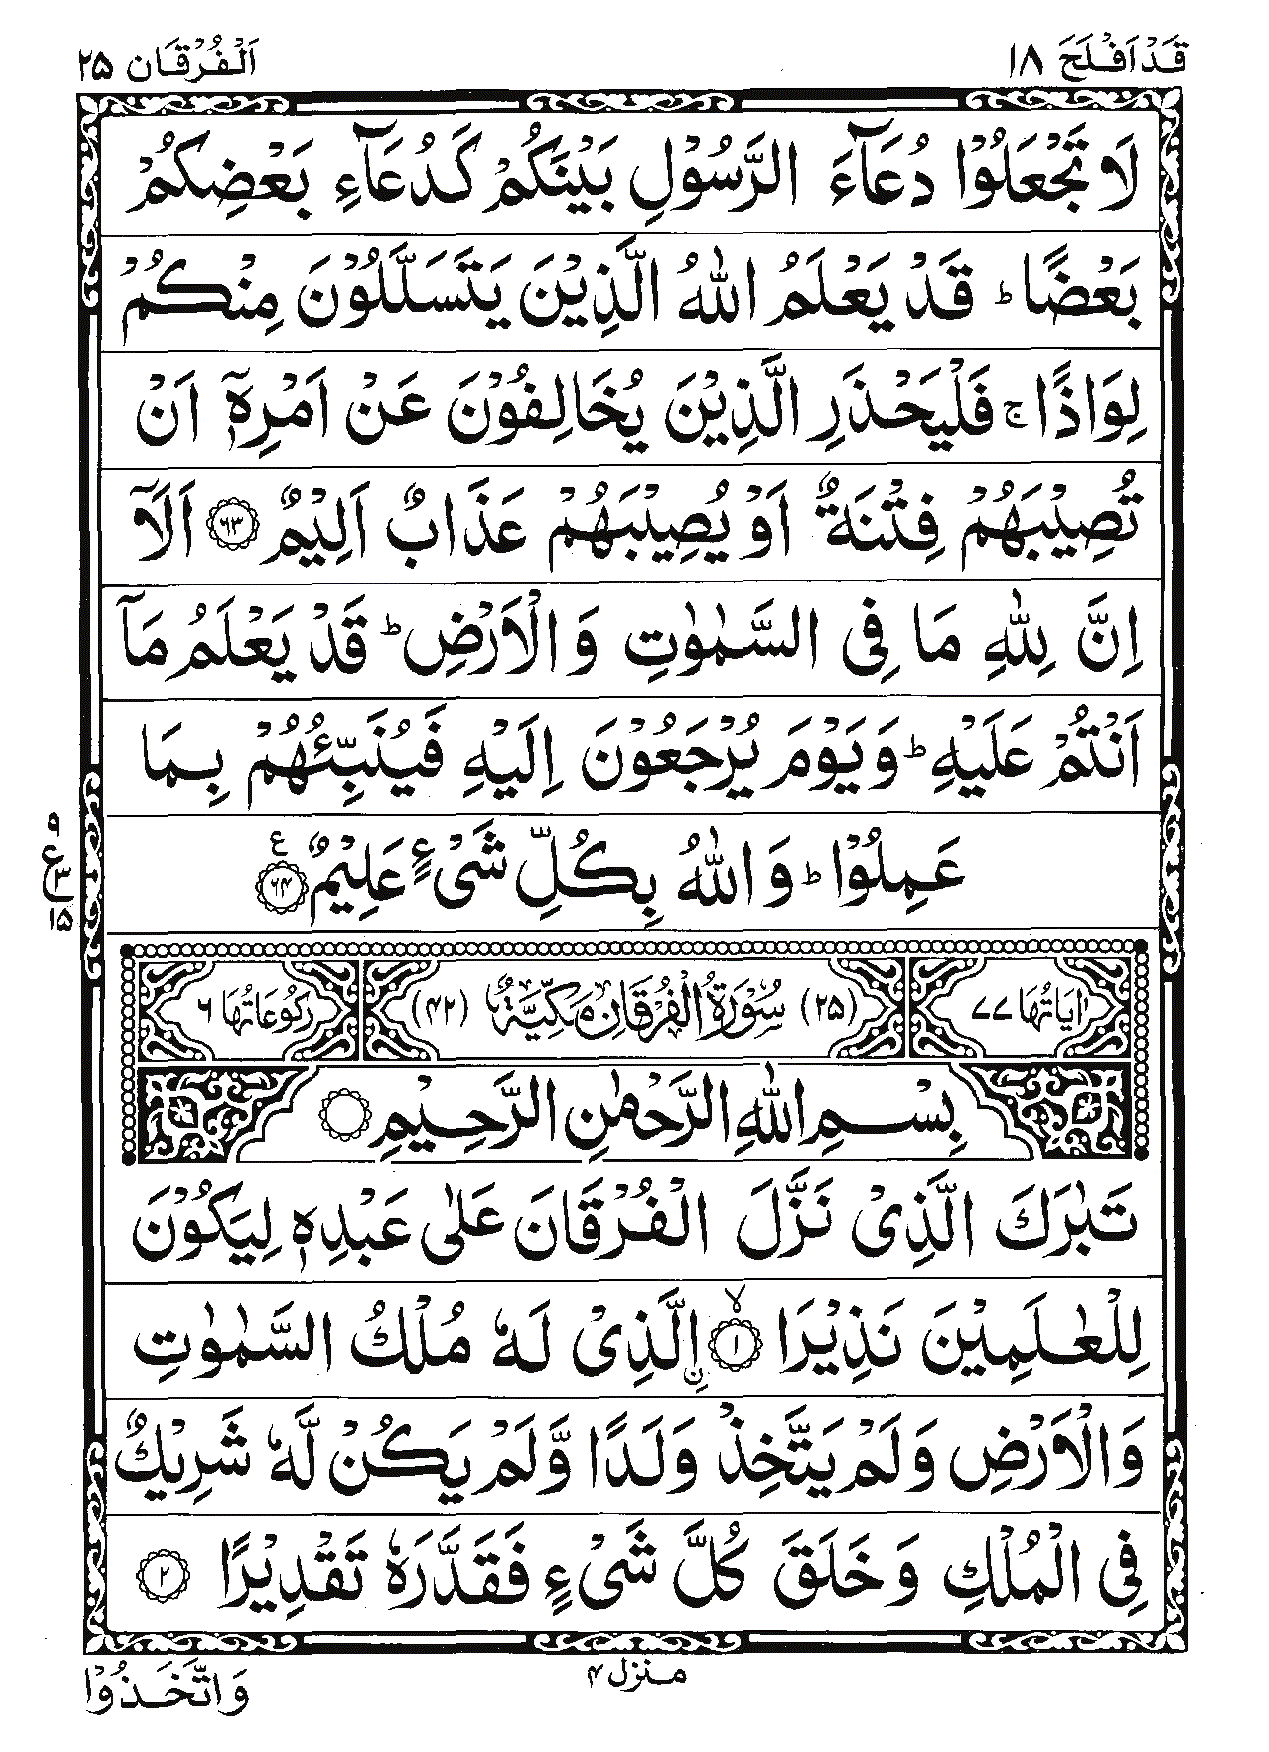 قَدْ اَفْلَحَ ١٨
اَلْفُرْقَان ٢۵
لَا تَجْعَلُوْا دُعَآءَ الرَّسُوْلِ بَيْنَكُمْ كَدُعَآءِ بَعْضِكُمْ
بَعْضًا ؕ قَدْ يَعْلَمُ اللّٰهُ الَّذِيْنَ يَتَسَلَّلُوْنَ مِنْكُمْ
لِوَاذًا ۚ فَلْيَحْذَرِ الَّذِيْنَ يُخَالِفُوْنَ عَنْ اَمْرِهٖۤ اَنْ
تُصِيْبَهُمْ فِتْنَةٌ اَوْ يُصِيْبَهُمْ عَذَابٌ اَلِيْمٌ ۝٦٣ اَلَاۤ
اِنَّ لِلّٰهِ مَا فِى السَّمٰوٰتِ وَ الْاَرْضِ ؕ قَدْ يَعْلَمُ مَاۤ
اَنْتُمْ عَلَيْهِ ؕ وَ يَوْمَ يُرْجَعُوْنَ اِلَيْهِ فَيُنَبِّئُهُمْ بِمَا
عَمِلُوْا ؕ وَ اللّٰهُ بِكُلِّ شَىْءٍ عَلِيْمٌ ۝٦۴ ع
٩
ع ٣
١۵
اٰيَاتُهَا ٧٧
(٢۵) سُوْرَةُ الْفُرْقَانِ مَكِّيَّةٌ (۴٢)
رُكُوْعَاتُهَا ٦
بِسْمِ اللّٰهِ الرَّحْمٰنِ الرَّحِيْمِ ۝
تَبٰرَكَ الَّذِىْ نَزَّلَ الْفُرْقَانَ عَلٰى عَبْدِهٖ لِيَكُوْنَ
لِلْعٰلَمِيْنَ نَذِيْرَا ۝١ۙ اۨلَّذِىْ لَهٗ مُلْكُ السَّمٰوٰتِ
وَ الْاَرْضِ وَ لَمْ يَتَّخِذْ وَلَدًا وَّ لَمْ يَكُنْ لَّهٗ شَرِيْكٌ
فِى الْمُلْكِ وَ خَلَقَ كُلَّ شَىْءٍ فَقَدَّرَهٗ تَقْدِيْرًا ۝٢
منزل ۴
وَ اتَّخَذُوْا